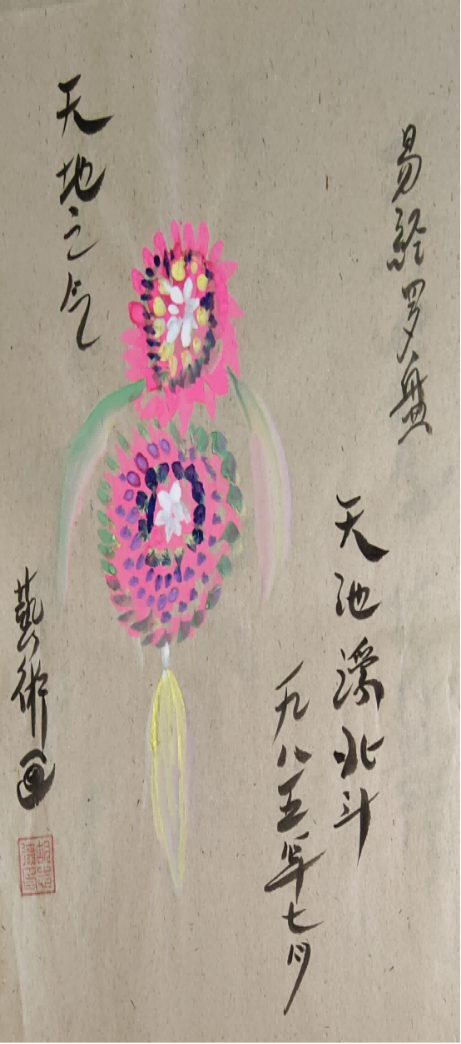 易經罗盘
天池浮北斗
一九八五年七月
天地之气
藝術画